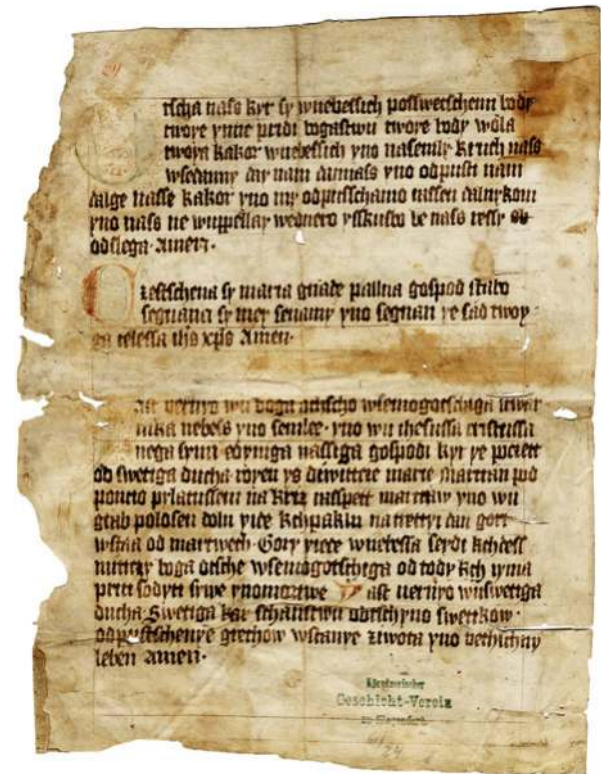 tscha nass kyr sy wnebessich posswetschenu body
twoye ymie pridi bogastwu twoye body wola
twoya kakor wnebessich yno nasemly kruch nass
wsedanny day nam dannass yno odpusti nam
dalge nasse kakor yno my odpusschamo nassen dalnykom
yno nass ne wuppellay wednero ysskusbo le nass ressy
odslega Amen.
Zestschena sy maria gnade pallna gospod stabo
segnana sy mey senamy yno segnan ye sad twoy
ga telessa ihs xps Amen.
Jast veruyo wu boga wsemogotschiga stwar
nika nebess yno semlee yno wu ihesussa cristussa
nega synu edyniga nassiga gospodi kyr ye poczett
od swetiga ducha royen ys diwittcze marie martran pod
poncio pylatussem na kriz raspett martaw yno wu
grab polosen dolu yide kchpaklu na trettyi dan gori
wstaa od martwech Gory yide wnebessa sedi kchdess
nitczy boga otsche wsemogotschiga od tody kch ymma
priti soditi sywe ynomortwe Jast veruyo wuswetiga
ducha Swetiga karschanstwu obtschyno swettkow
odpustschenye grechow wstanye ziwota yno vechichny
leben Amen.
Geschicht-Verein
24